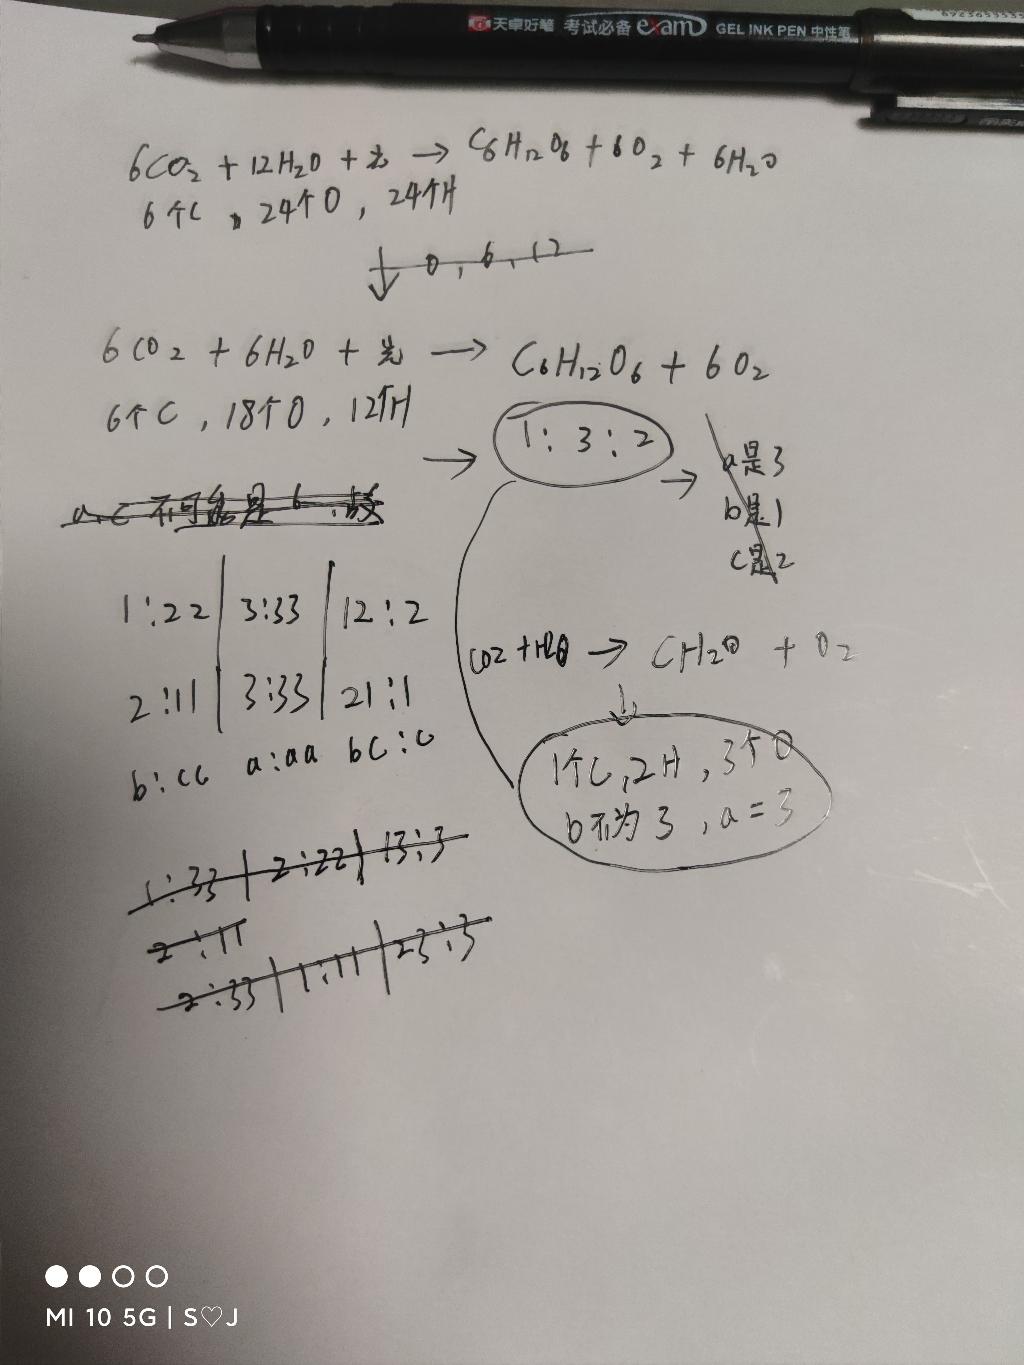 天卓好笔 考试必备 exam GEL INK PEN 中性笔
6CO2 + 12H2O + 光 → C6H12O6 + 6O2 + 6H2O
6个C, 24个O, 24个H
↓ 0, 6, 12
6CO2 + 6H2O + 光 → C6H12O6 + 6O2
6个C, 18个O, 12个H
→ 1:3:2 →
a是3
b是1
c是2
a, c 不可能是 6
1:22 | 3:33 | 12:2
2:11 | 3:33 | 21:1
b:cc a:aa bc:c
CO2 + H2O → CH2O + O2
↓
1个C, 2H, 3个O
b不为3, a=3
1:33 | 2:22 | 13:3
2:11
2:33 | 1:11 | 23:3
MI 10 5G | S♡J